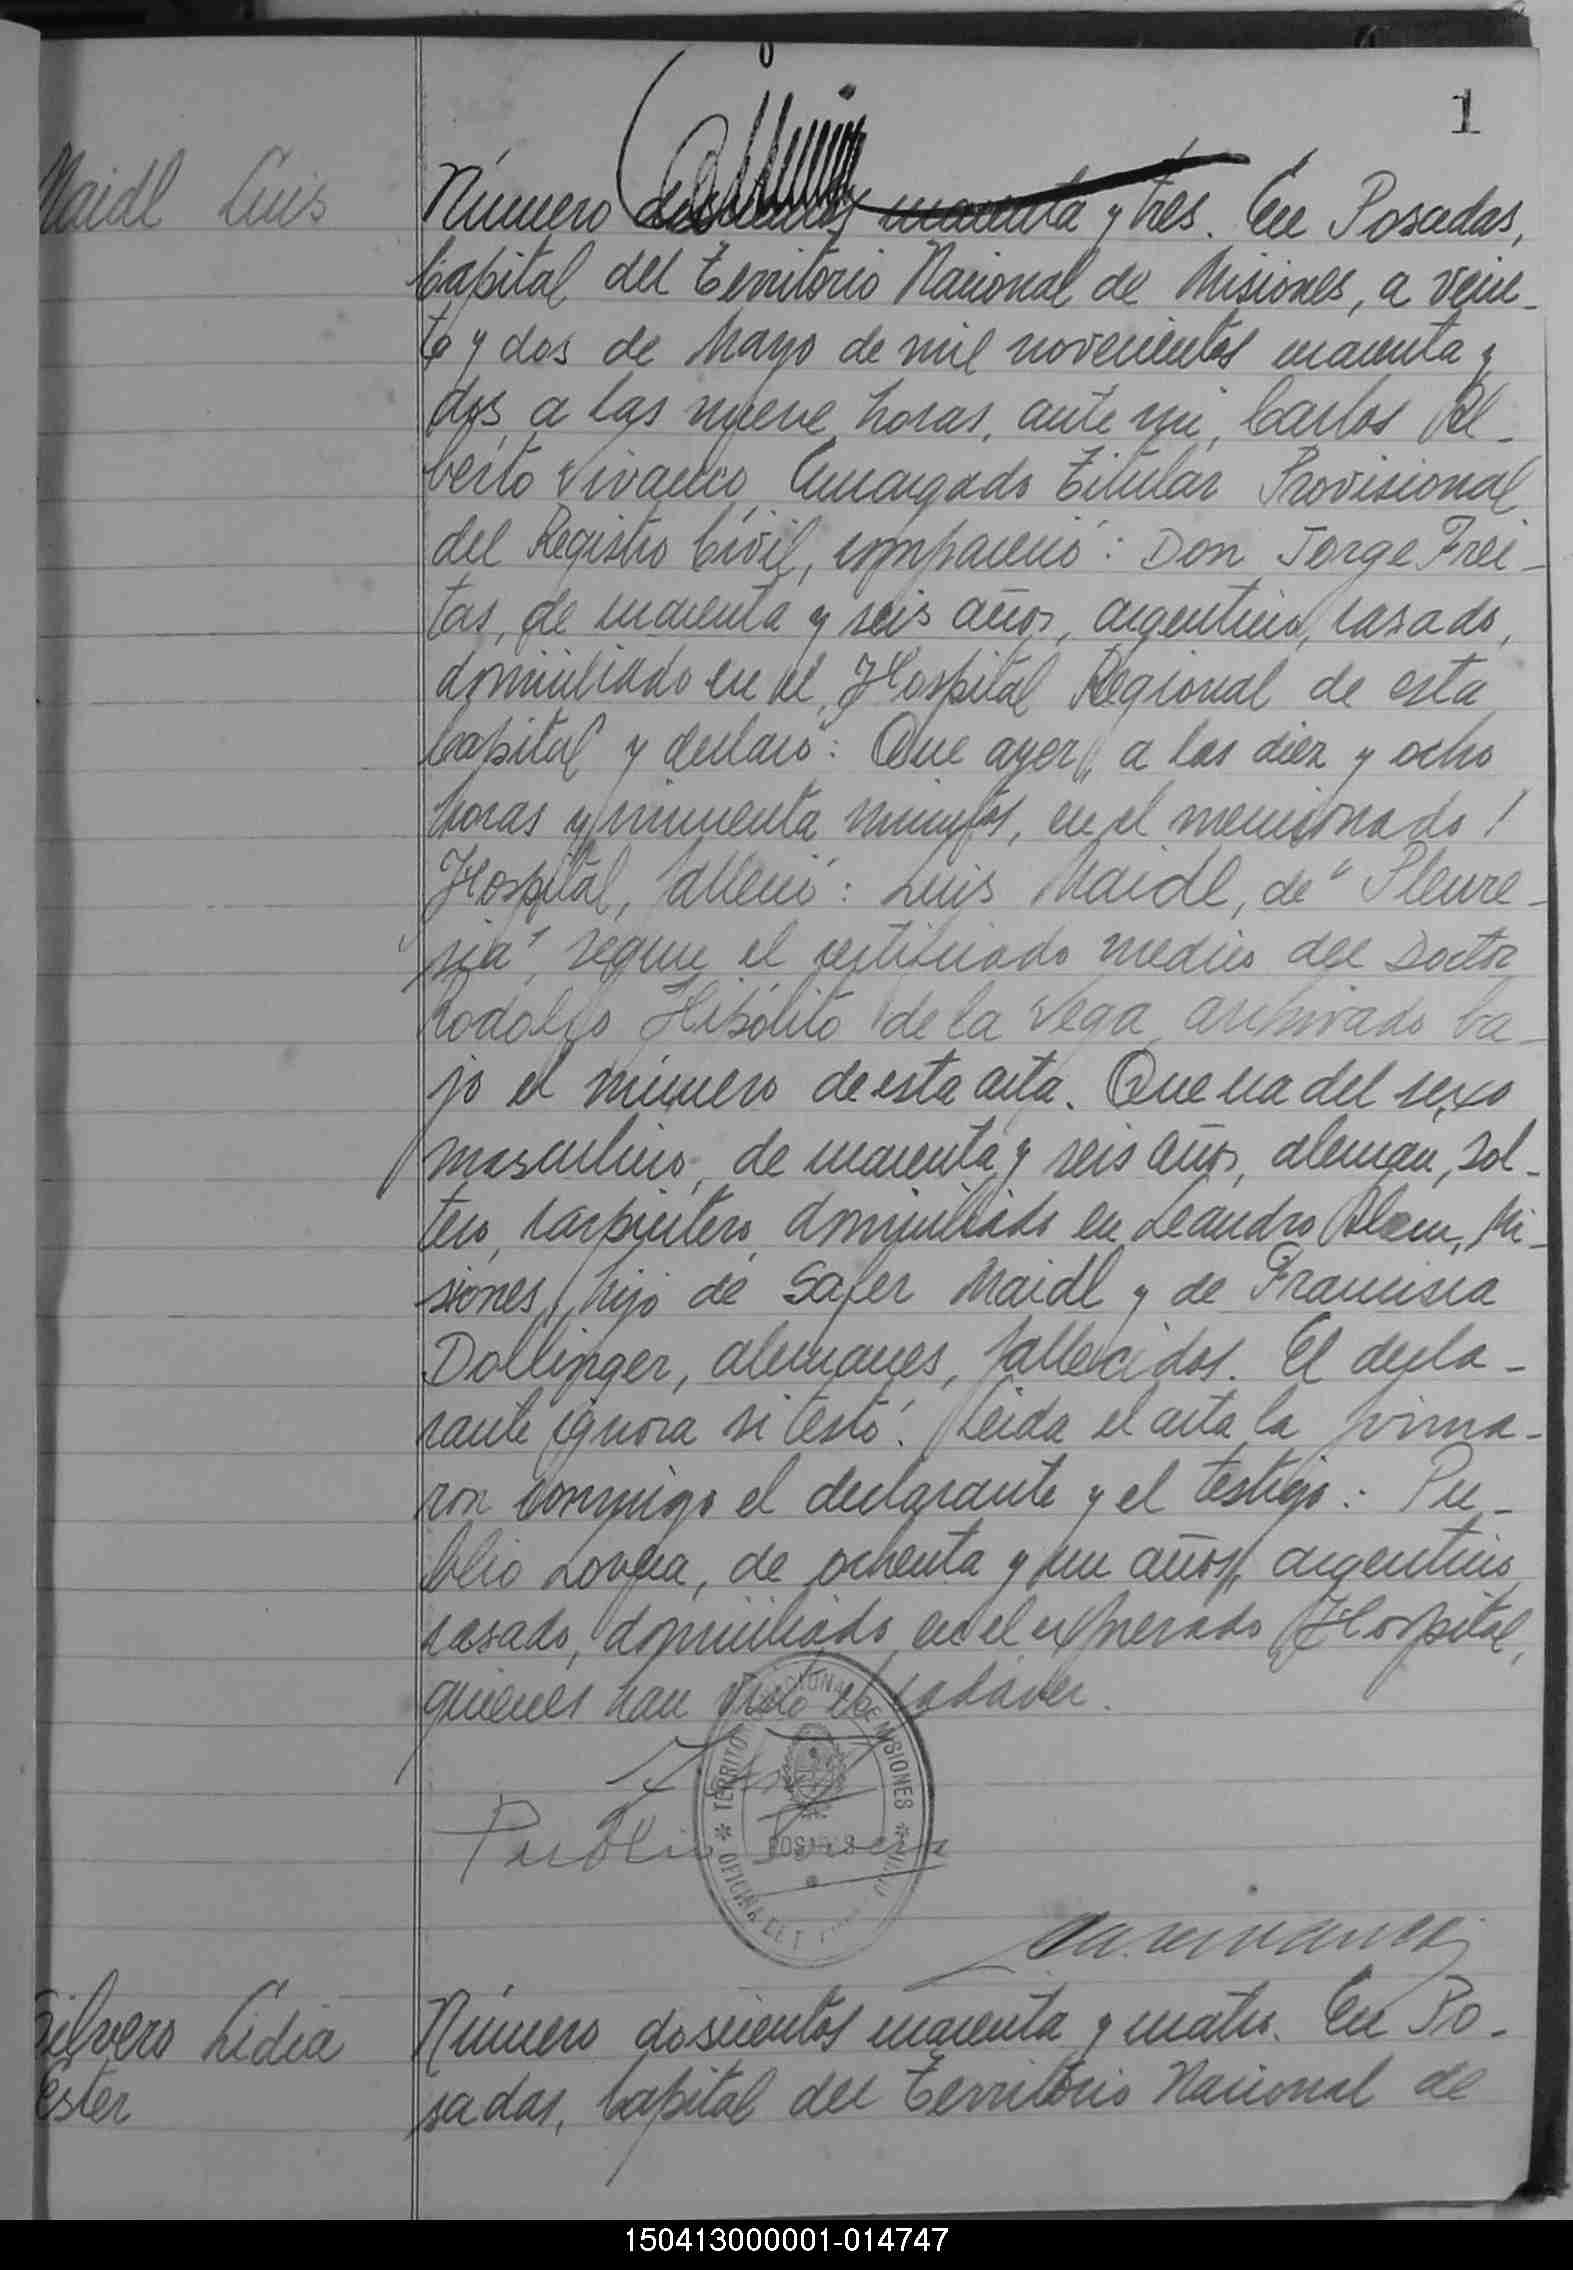 1
Maidl Luis
Número doscientos cuarenta y tres. En Posadas,
Capital del Territorio Nacional de Misiones, a vein-
te y dos de Mayo de mil novecientos cuarenta y
dos, a las nueve horas, ante mi, Carlos Al-
berto Vivanco, Encargado Titular Provisional
del Registro Civil, compareció: Don Jorge Frei-
tas, de cuarenta y seis años, argentino, casado,
domiciliado en el Hospital Regional de esta
Capital y declaró: Que ayer, a las diez y ocho
horas y cincuenta minutos, en el mencionado
Hospital, falleció: Luis Maidl, de "Pleure-
sia", segun el certificado medico del Doctor
Rodolfo Hipólito de la Vega, archivado ba-
jo el número de esta acta. Que era del sexo
masculino, de cuarenta y seis años, aleman, sol-
tero, carpintero, domiciliado en Leandro Alem, Mi-
siones, hijo de Safer Maidl y de Francisca
Dollinger, alemanes, fallecidos. El decla-
rante ignora si testó. Leida el acta, la firma-
ron conmigo el declarante y el testigo: Pu-
blio de ochenta y un años, argentino,
casado, domiciliado en el expresado Hospital,
quienes han visto el cadáver.
TERRITORIO NACIONAL DE MISIONES
POSADAS
OFICINA
Publio
Silvero Lidia
Ester
Número doscientos cuarenta y cuatro. En Po-
sadas, Capital del Territorio Nacional de
150413000001-014747